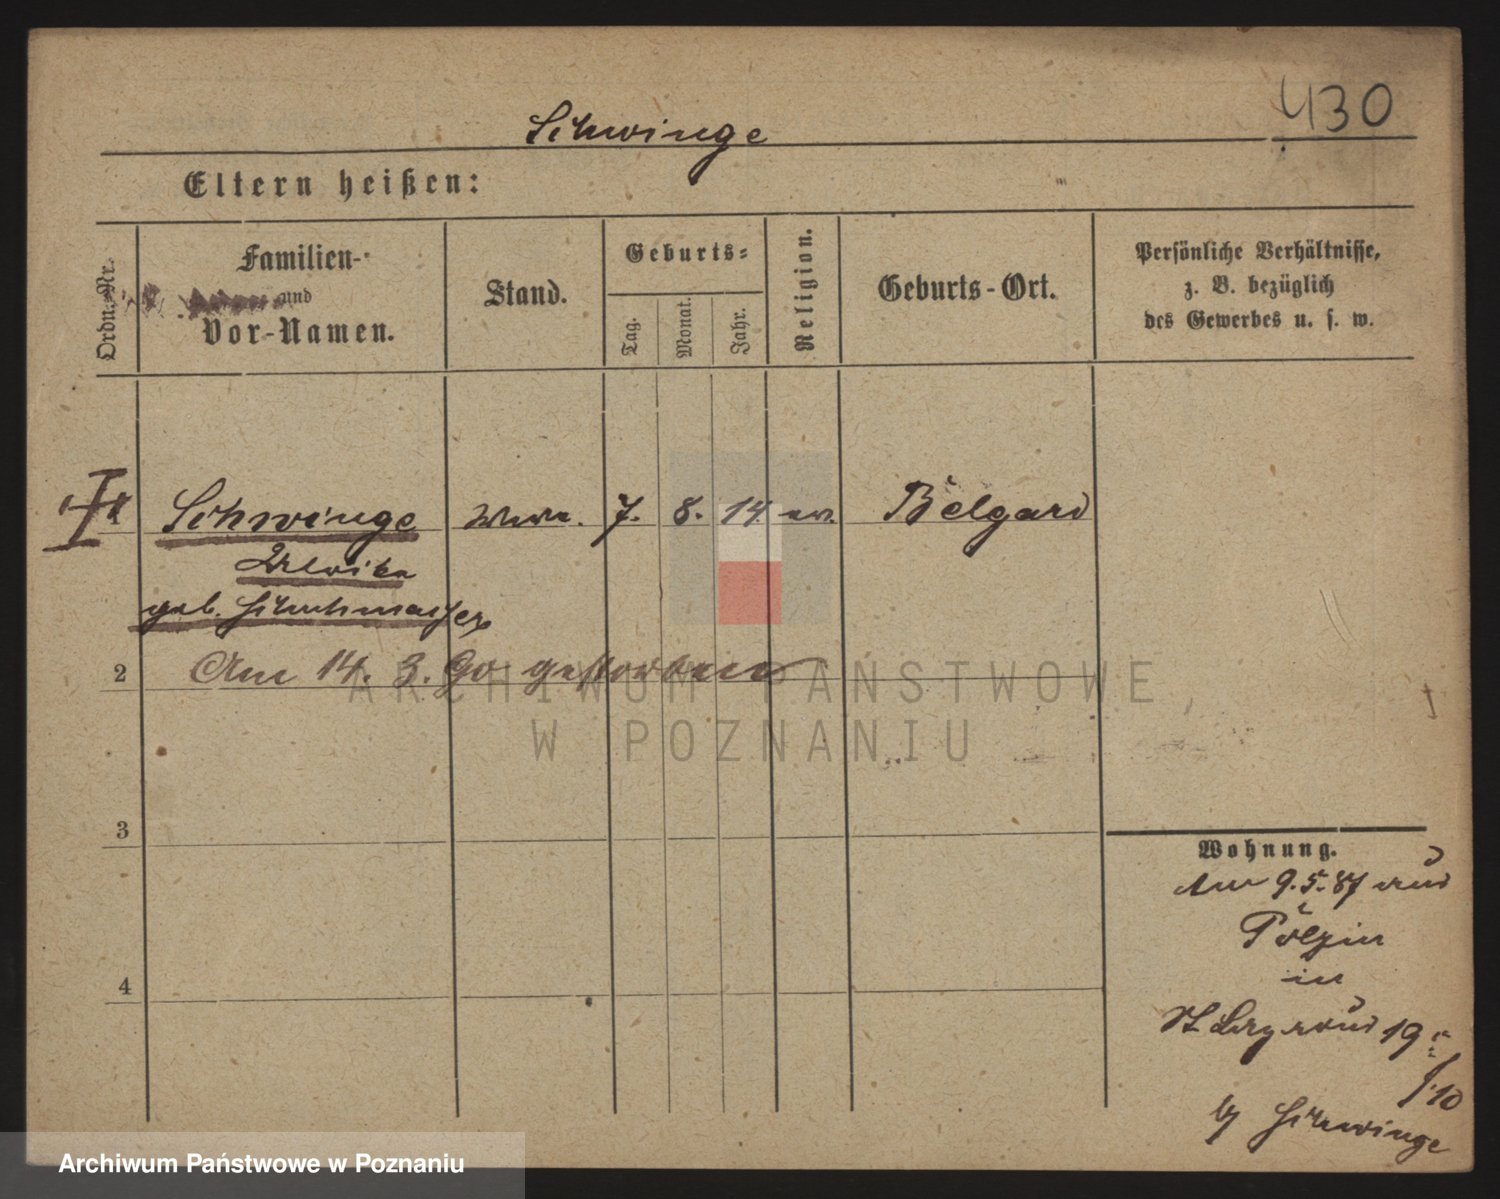 430
Schwinge
Eltern heißen:
Ordn.-Nr.
Familien-
und
Vor-Namen.
Stand.
Geburts-
Tag.
Monat.
Jahr.
Religion.
Geburts-Ort.
Persönliche Verhältnisse,
z. B. bezüglich
des Gewerbes u. s. w.
Schwinge Wwe. 7. 8. 14. ev. Belgard
Ulrike
geb. Schuhmacher
2 Am 14. 3. 90 gestorben
ARCHIWUM PAŃSTWOWE
W POZNANIU
3
Wohnung.
Am 9.5.87 aus
Polzin
in
4
St Lazarus 19
f. 10
by Schwinge
Archiwum Państwowe w Poznaniu